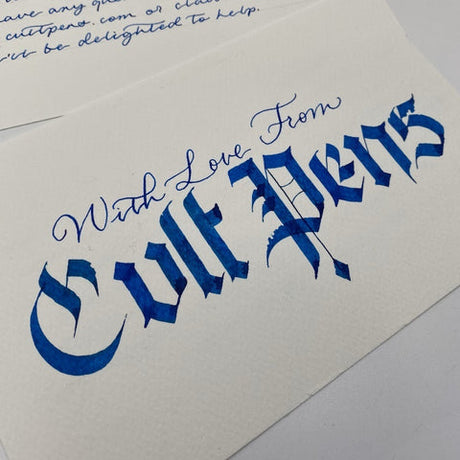 have any
cultpens.com or
be delighted to help.
With Love From
Cult Pens